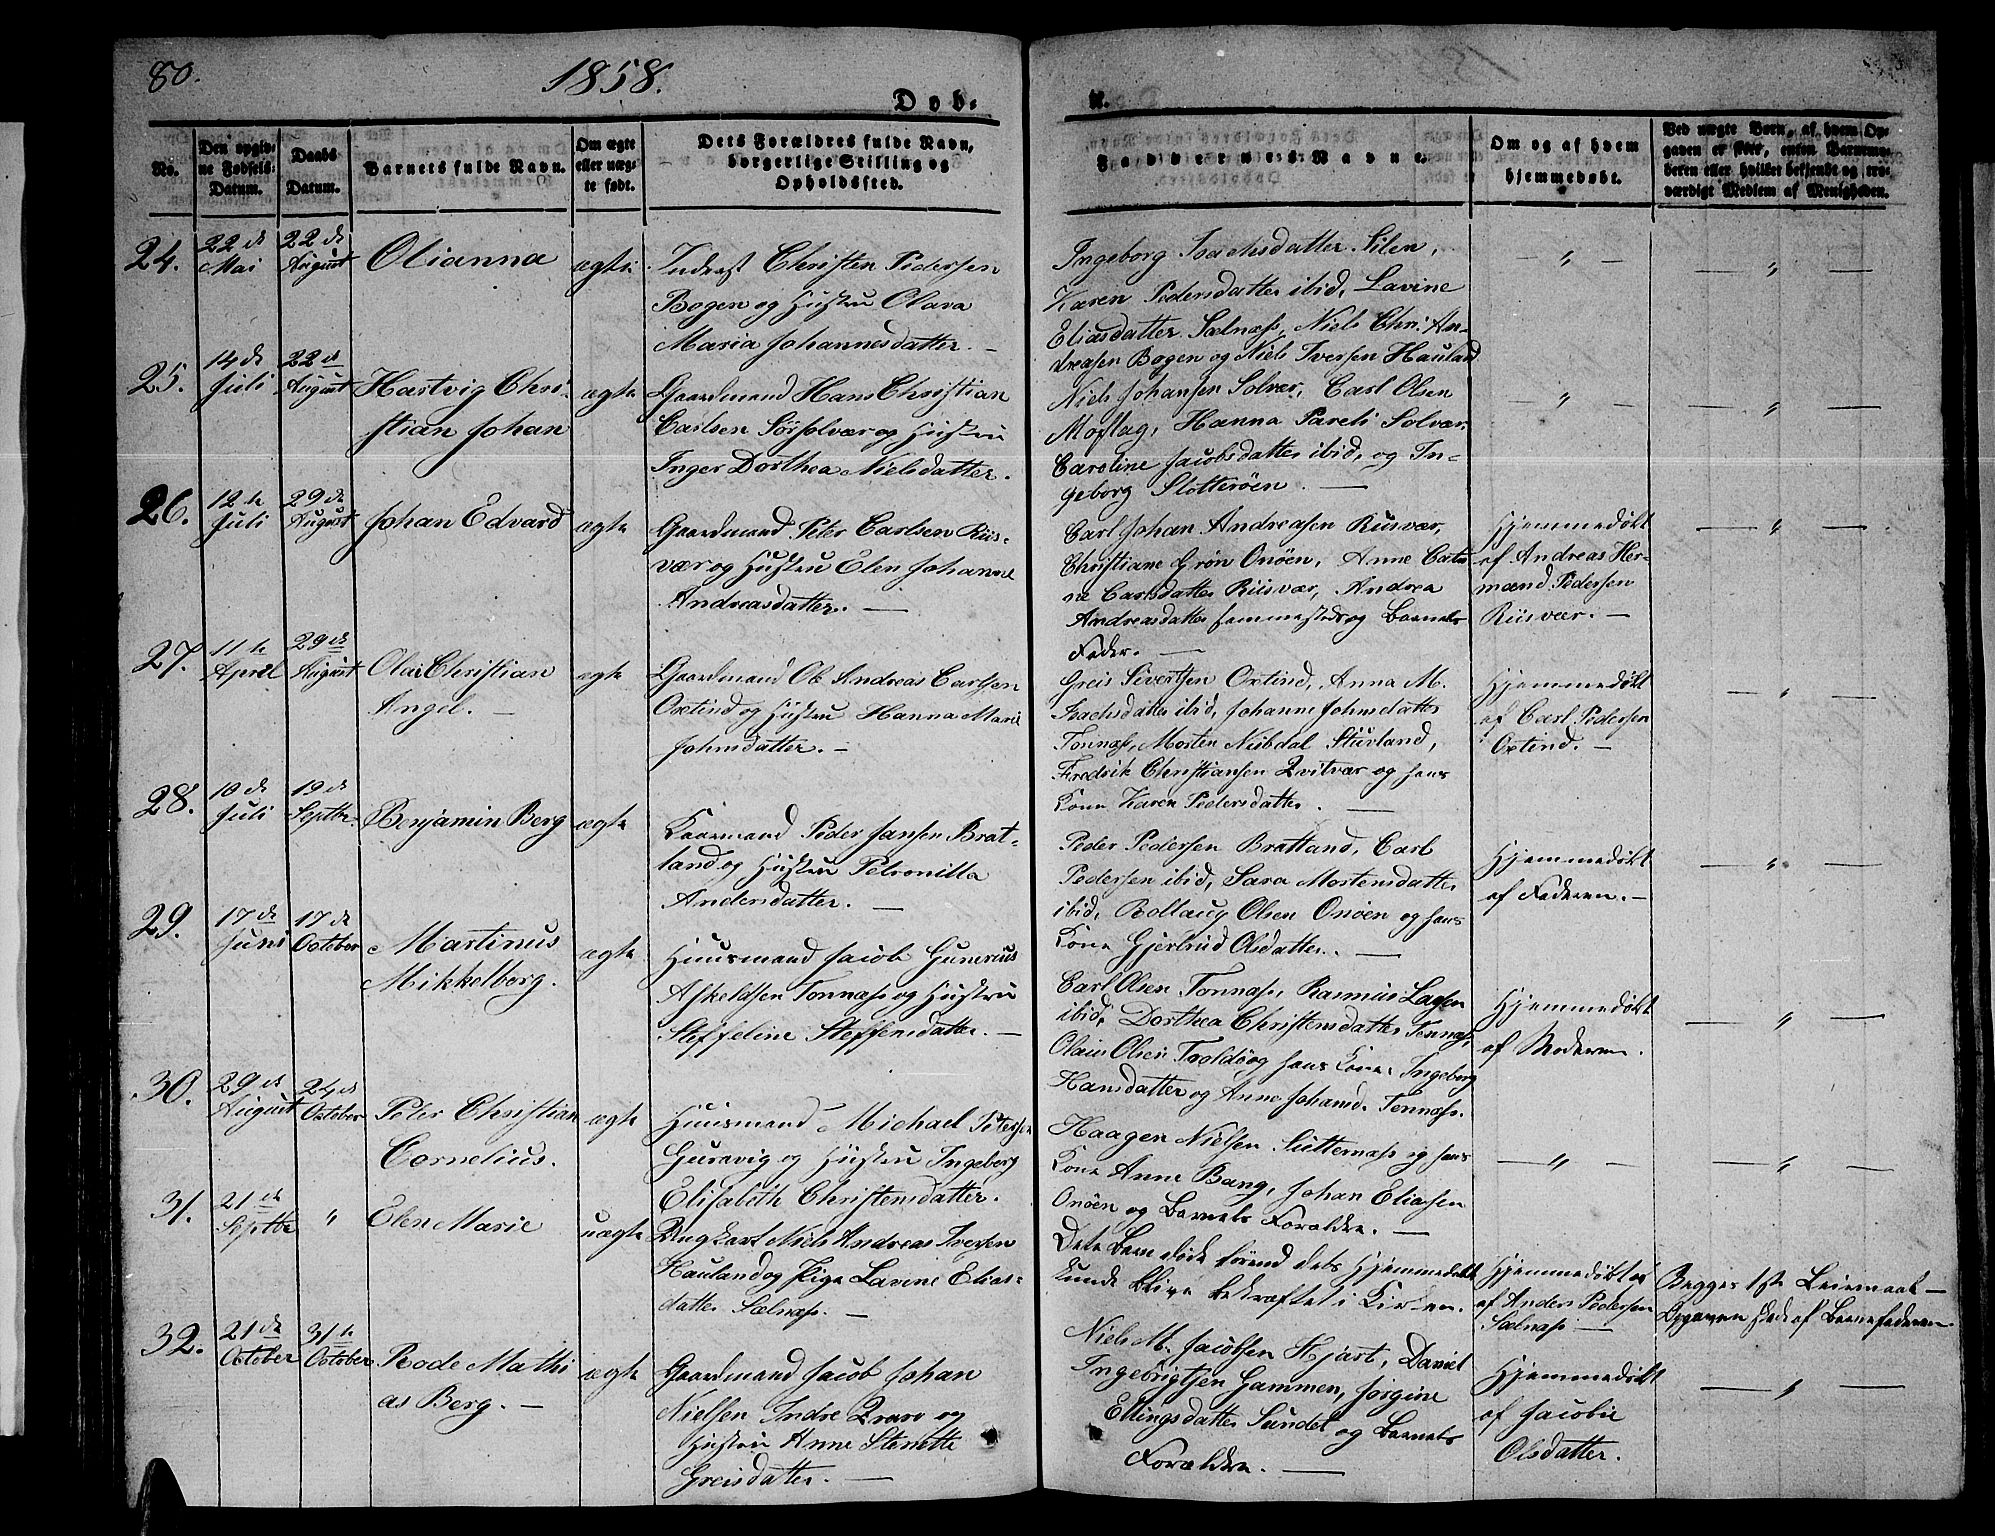 80.
1858.
Døb-
te.
No.
Den opgiv-
ne Fødsels-
Datum.
Daabs
Datum.
Barnets fulde Navn.
Om ægte
eller uæg-
te født.
Dets Forældres fulde Navn,
borgerlige Stilling og
Opholdssted.
Faddernes Navne.
Om og af hvem
hjemmedøbt.
Ved uægte Børn, af hvem Op-
gaven er skeet, enten Barnemo-
deren eller hvilket bekjendt og tro-
værdigt Medlem af Menigheden.
24.
22de
Mai
22de
August
Olianna
ægte
Inderst Christen Pedersen
Bogen og Hustru Olava
Maria Johannesdatter. -
Ingeborg Isachsdatter Silen,
Karen Pedersdatter ibid, Lavine
Eliasdatter Sælnæss, Niels Chr. An-
dreasen Bogen og Niels Iversen Hauland
— " —
— " —
25.
14de
Juli
22de
August
Hartvig Chri-
stian Johan
ægte
Gaardmand Hans Christian
Carlsen Sørsolvær og Hustru
Inger Dorthea Nielsdatter.
Niels Johansen Solvær, Carl Olsen
Moflag, Hanna Pareli Solvær,
Caroline Jacobsdatter ibid, og In-
geborg Slotterøen. —
— " —
— " —
26.
12te
Juli
29de
August
Johan Edvard
ægte
Gaardmand Peter Carlsen Riis-
vær og Hustru Elen Johanne
Andreasdatter. —
Carl Johan Andreasen Riisvær,
Christiane Grøn Onøen, Anne Catri-
ne Carlsdatter Riisvær, Andrea
Andreasdatter sammesteds og Barnets
Fader. —
Hjemmedøbt
af Andreas Her-
mand Pedersen
Riisvær. -
— " —
27.
11te
April
29de
August
Olai Christian
Angel. -
ægte
Gaardmand Ole Andreas Carlsen
Oxtind og Hustru Hanna Marie
Johnsdatter. -
Greis Sivertsen Oxtind, Anna M.
Isachsdatter ibid, Johanne Johnsdatter
Tonnæss, Morten Niibdal Stuvland,
Fredrik Christiansen Qvitvær og hans
Kone Karen Pedersdatter. —
Hjemmedøbt
af Carl Pedersen
Oxtind. -
— " —
28.
18de
Juli
19de
Septbr.
Benjamin Berg
ægte
Gaardmand Peder Jansen Brat-
land og Hustru Petronilla
Andersdatter. —
Peder Pedersen Bratland, Carl
Pedersen ibid, Sara Mortensdatter
ibid, Rollaug Olsen Onøen og hans
Kone Gjertrud Olsdatter. —
Hjemmedøbt
af Faderen. -
— " —
29.
17de
Juni
17de
October
Martinus
Mikkelborg.
ægte
Huusmand Jacob Gunerius
Askeldsen Tonnæss og Hustru
Steffeline Steffensdatter. —
Carl Olsen Tonnæss, Rasmus Larsen
ibid, Dorthea Christensdatter Tonnæss,
Olaus Olsen Troldø og hans Kone Ingeborg
Hansdatter og Anne Johansd. Tonnæss.
Hjemmedøbt
af Moderen.
— " —
30.
29de
August
24de
October
Peter Christian
Cornelius.
ægte
Huusmand Michael Petersen
Gursvig og Hustru Ingeborg
Elisabeth Christensdatter.
Haagen Nielsen Sutternæss og hans
Kone Anne Bang, Johan Eliasen
Onøen og Barnets Forældre. —
— " —
— " —
31.
21de
Septbr
"
Elen Marie
uægte
Ungkarl Niels Andreas Iversen
Hauland og Pige Lavine Elias-
datter Sælnæss. —
Dette Barn døde førend dets Hjemmedøbt
kunde blive bekræftet i Kirken.
Hjemmedøbt
af Anders Pedersen
Sælnæss —
Begges 1ste Leiermaal -
Opgaven skede af Barnefaderen.
32.
21de
October
31te
October
Bode Mathi
as Berg. -
ægte
Gaardmand Jacob Johan
Nielsen Indre Qvarø og
Hustru Anne Stenette
Greisdatter. —
Niels M. Jacobsen Hjart, Daniel
Ingebrigtsen Gammen, Jørgine
Ellingsdatter Sundet og Barnets
Forældre. —
Hjemmedøbt
af Jacobie
Olsdatter.
— " —